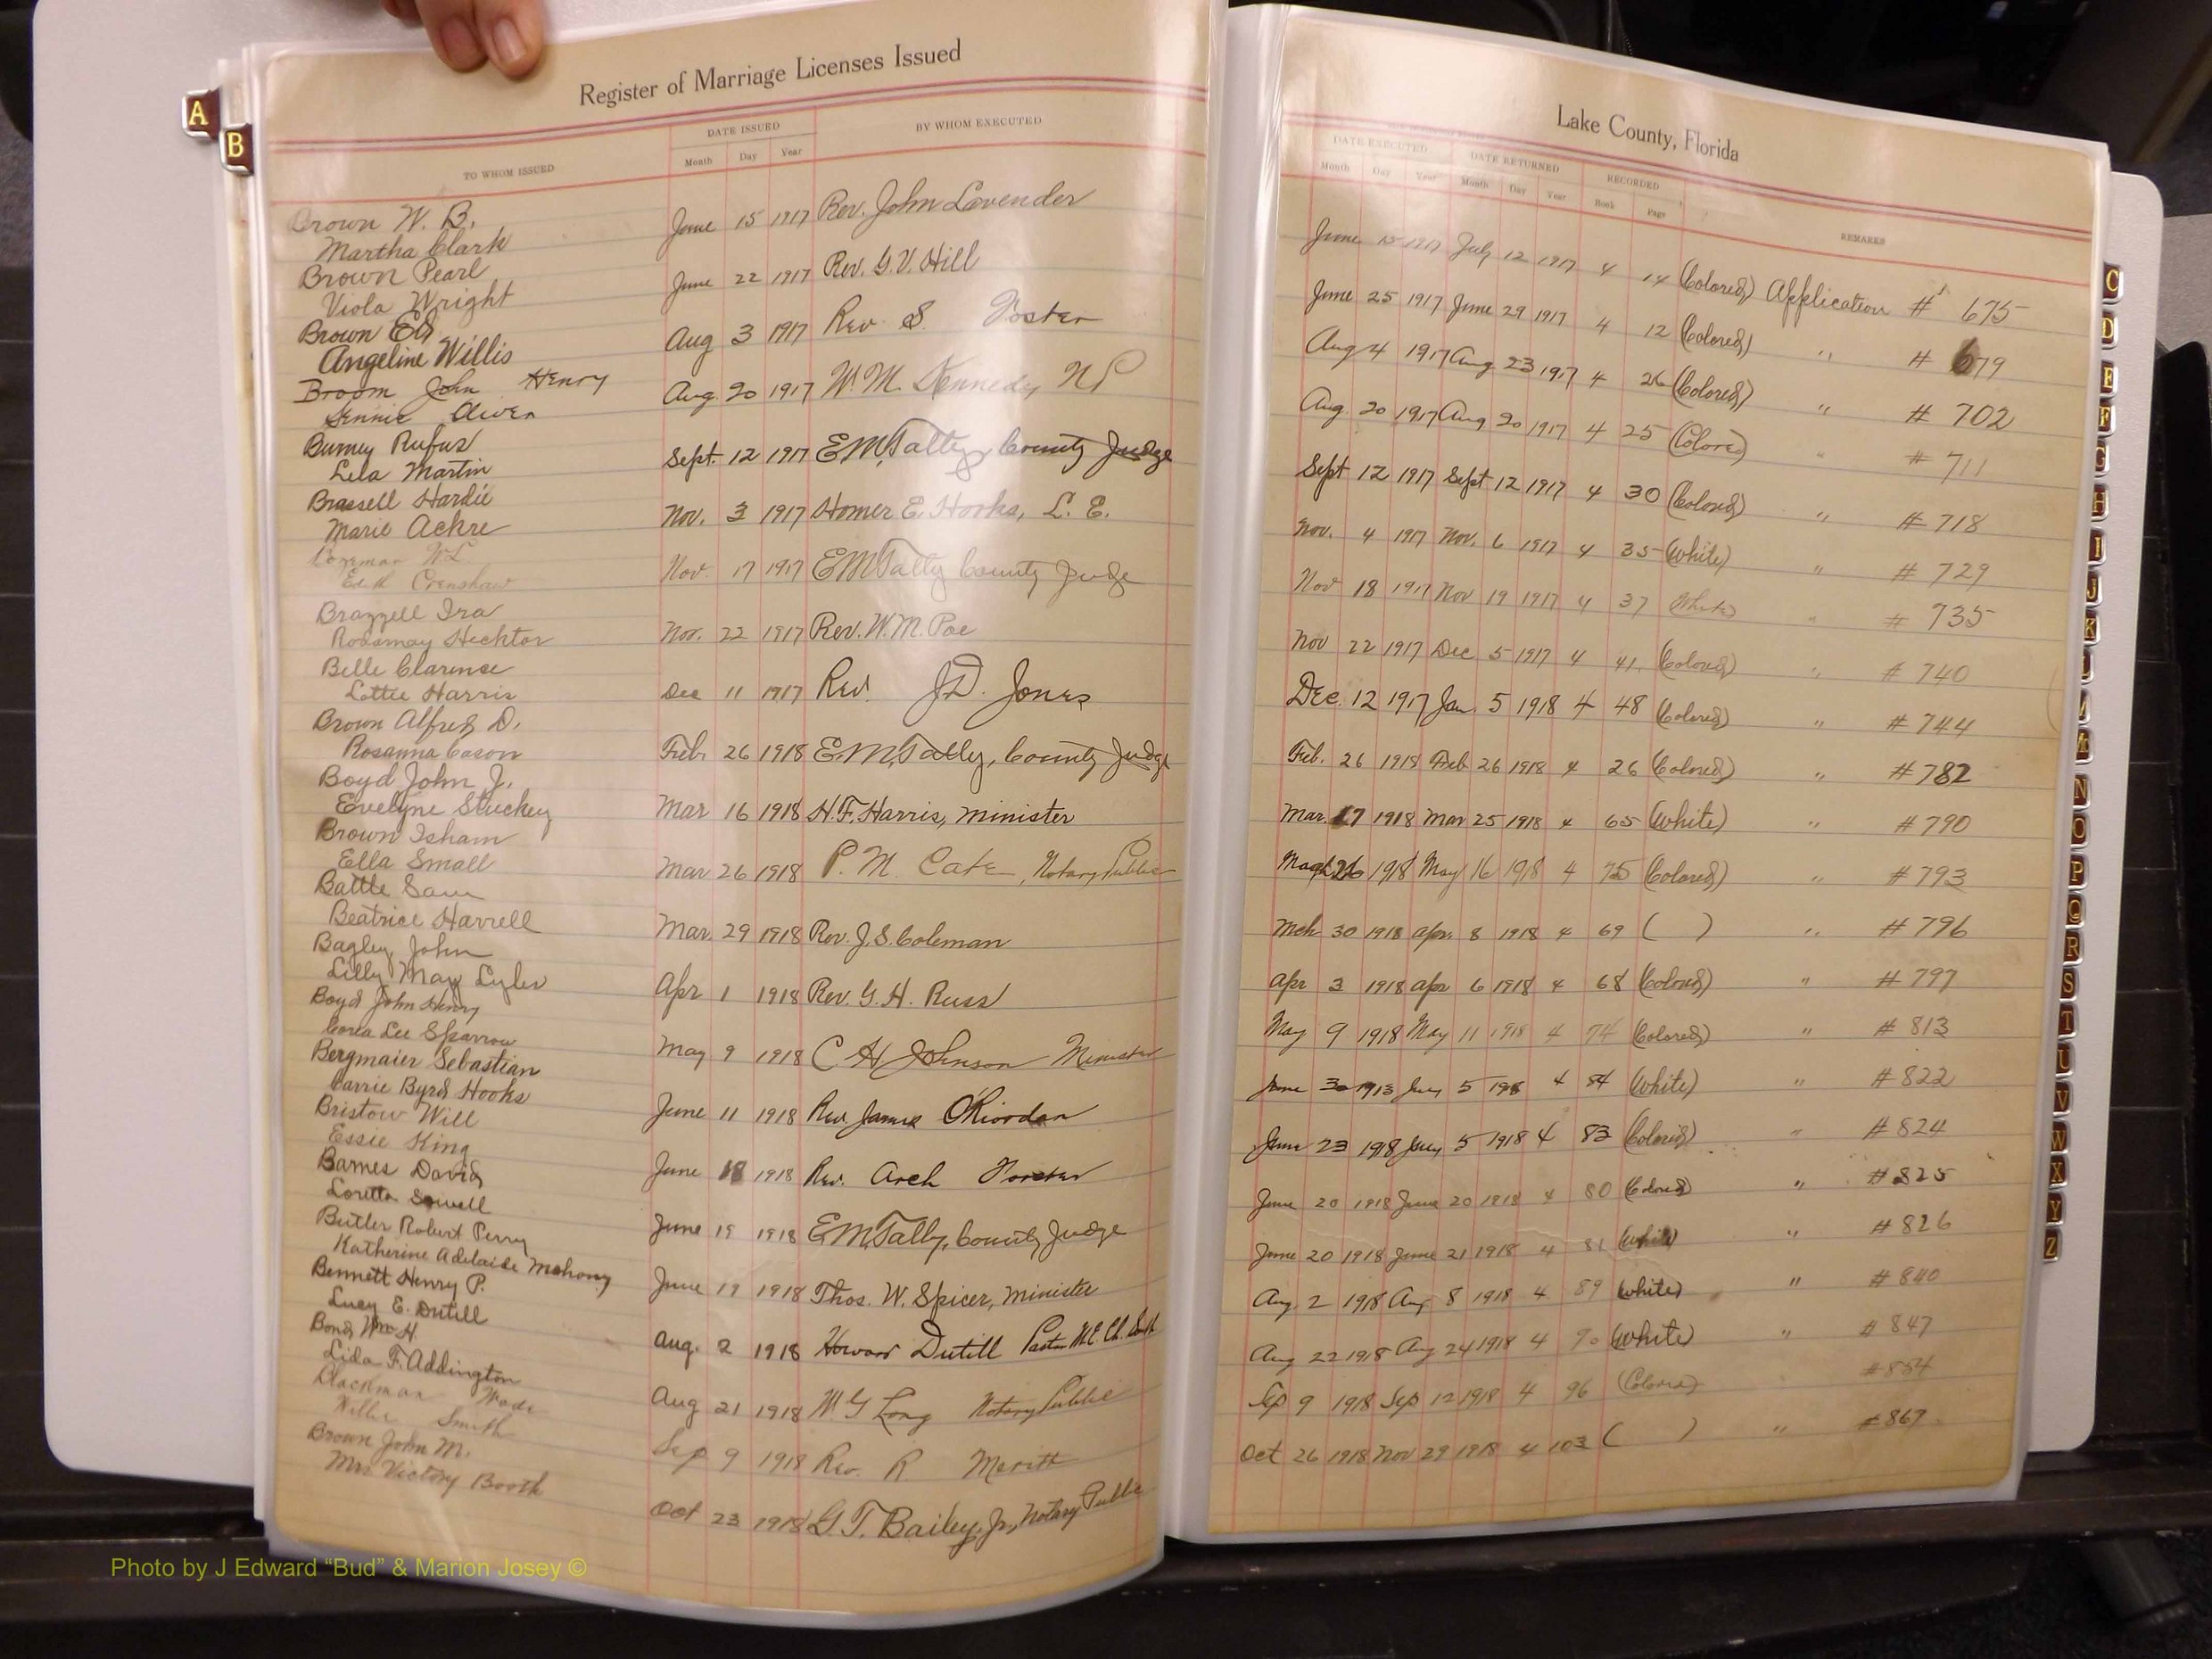 Register of Marriage Licenses Issued
TO WHOM ISSUED DATE ISSUED BY WHOM EXECUTED
Month Day Year
Brown W. B.
Martha Clark June 15 1917 Rev. John Lavender
Brown Pearl
Viola Wright June 22 1917 Rev. G.V. Hill
Brown Ed
Angeline Willis Aug 3 1917 Rev. S. Foster
Broom John Henry
Jennie Oliver Aug. 20 1917 W. M. Kennedy NP
Burney Rufus
Lela Martin Sept. 12 1917 E M Tally, County Judge
Brassell Hardie
Marie Ackre Nov. 3 1917 Homer E. Hooks, L. E.
Bozeman W.L.
Edith Crenshaw Nov. 17 1917 E M Tally County Judge
Brazzell Ira
Rodamay Hechtor Nov. 22 1917 Rev. W. M. Poe
Belle Clarence
Lottie Harris Dec 11 1917 Rev. J D. Jones
Brown Alfred D.
Rosanna Cason Feb. 26 1918 E M Tally, County Judge
Boyd John J.
Evelyne Stuckey Mar 16 1918 H. F. Harris, Minister
Brown Isham
Ella Small Mar 26 1918 P. M. Cate, Notary Public
Battle Sam
Beatrice Harrell Mar. 29 1918 Rev. J. S. Coleman
Bagley John
Lilly May Lyles Apr 1 1918 Rev. G. H. Russ
Boyd John Henry
Corea Lee Sparrow May 9 1918 C. H Johnson Minister
Bergmaier Sebastian
Carrie Byrd Hooks June 11 1918 Rev. James ORiordan
Bristow Will
Essie King June 18 1918 Rev. Arch
Barnes David
Loretta Sowell June 19 1918 E M Tally, County Judge
Butler Robert Perry
Katherine Adelaide Mahony June 19 1918 Thos. W. Spicer, Minister
Bennett Henry P.
Lucy E. Dutill Aug. 2 1918 Howard Dutill Pastor M.E. Ch. South
Bond Wm H.
Lida F. Addington Aug 21 1918 W. G Long Notary Public
Blackman Wade
Willie Smith Sep 9 1918 Rev. R Meritt
Brown John M.
Mrs Victory Booth Oct 23 1918 G T. Bailey, Jr, Notary Public
Lake County, Florida
DATE EXECUTED DATE RETURNED RECORDED REMARKS
Month Day Year Month Day Year Book Page
June 15 1917 July 12 1917 4 14 (Colored) Application # 675
June 25 1917 June 29 1917 4 12 (Colored) " # 679
Aug 4 1917 Aug 23 1917 4 26 (Colored) " # 702
Aug. 20 1917 Aug 20 1917 4 25 (Colore) " # 711
Sept 12 1917 Sept 12 1917 4 30 (Colored) " # 718
Nov. 4 1917 Nov. 6 1917 4 35 (White) " # 729
Nov 18 1917 Nov 19 1917 4 37 (White) " # 735
Nov 22 1917 Dec 5 1917 4 41. (Colored) " # 740
Dec. 12 1917 Jan. 5 1918 4 48 (Colored) " # 744
Feb. 26 1918 Feb 26 1918 4 26 (Colored) " # 782
Mar. 17 1918 Mar 25 1918 4 65 (White) " # 790
26 1918 May 16 1918 4 75 (Colored) " # 793
Mch 30 1918 Apr. 8 1918 4 69 ( ) " # 796
Apr 3 1918 Apr 6 1918 4 68 (Colored) " # 797
May 9 1918 May 11 1918 4 74 (Colored) " # 813
June 30 1913 July 5 1918 4 84 (White) " # 822
June 23 1918 July 5 1918 4 83 (Colored) " # 824
June 20 1918 June 20 1918 4 80 (Colored) " # 825
June 20 1918 June 21 1918 4 81 (White) " # 826
Aug. 2 1918 Aug 8 1918 4 89 (White) " # 840
Aug 22 1918 Aug 24 1918 4 90 (White) " # 847
Sep 9 1918 Sep 12 1918 4 96 (Colored) # 854
Oct 26 1918 Nov 29 1918 4 103 ( ) " # 867
A
B
C
D
E
F
G
H
I
J
K
L
M
N
O
P
Q
R
S
T
U
V
W
X
Y
Z
Photo by J Edward “Bud” & Marion Josey ©